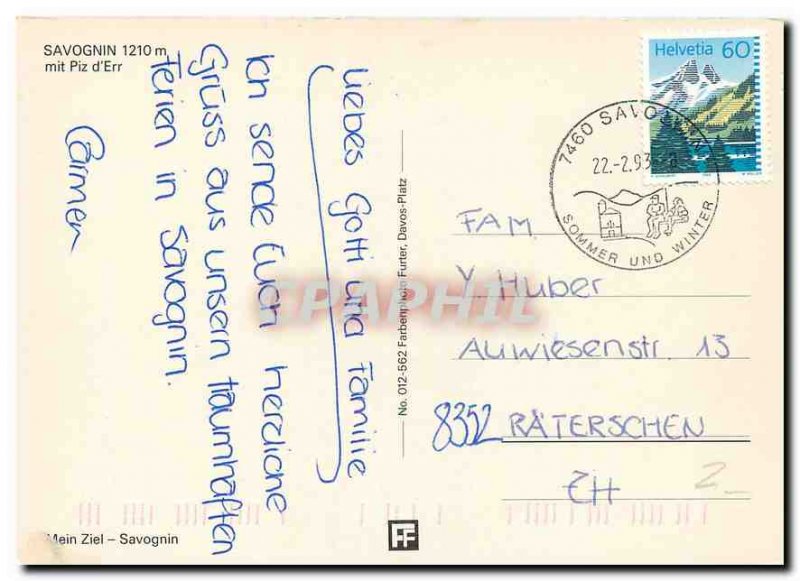 SAVOGNIN 1210 m
mit Piz d'Err
Liebes Gotti und Familie
Ich sende Euch herzliche
Grüss aus unsern traumhaften
Ferien in Savognin.
Carmen
Mein Ziel – Savognin
No. 012-562 Farbenphoto Furter, Davos-Platz
FF
Helvetia 60
7460 SAVOGNIN
22.-2.93
SOMMER UND WINTER
FAM.
Y. Huber
Auwiesenstr. 13
8352 RÄTERSCHEN
ZH
2_
CPAPHIL